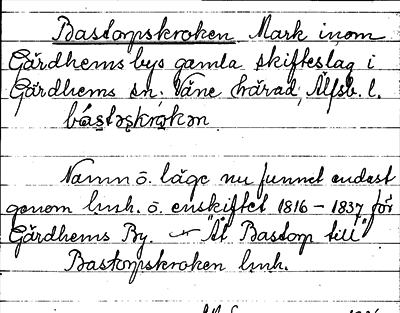 Bastorpskroken Mark inom
Gärdhems bys gamla skifteslag i
Gärdhems sn. Väne härad, Älfsb. l.
bástəs̥krokən
Namn o. läge nu funnet endast
genom lmh. o. enskiftet 1816 - 1837 för
Gärdhems By. "Åt Bastorp till"
Bastorpskroken lmh.